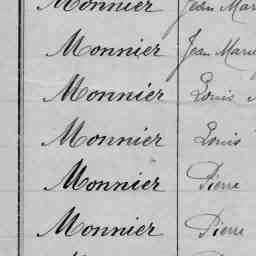 Monnier Jean Mar
Monnier Jean Marie
Monnier Louis
Monnier Louis
Monnier Pierre
Monnier Pierre